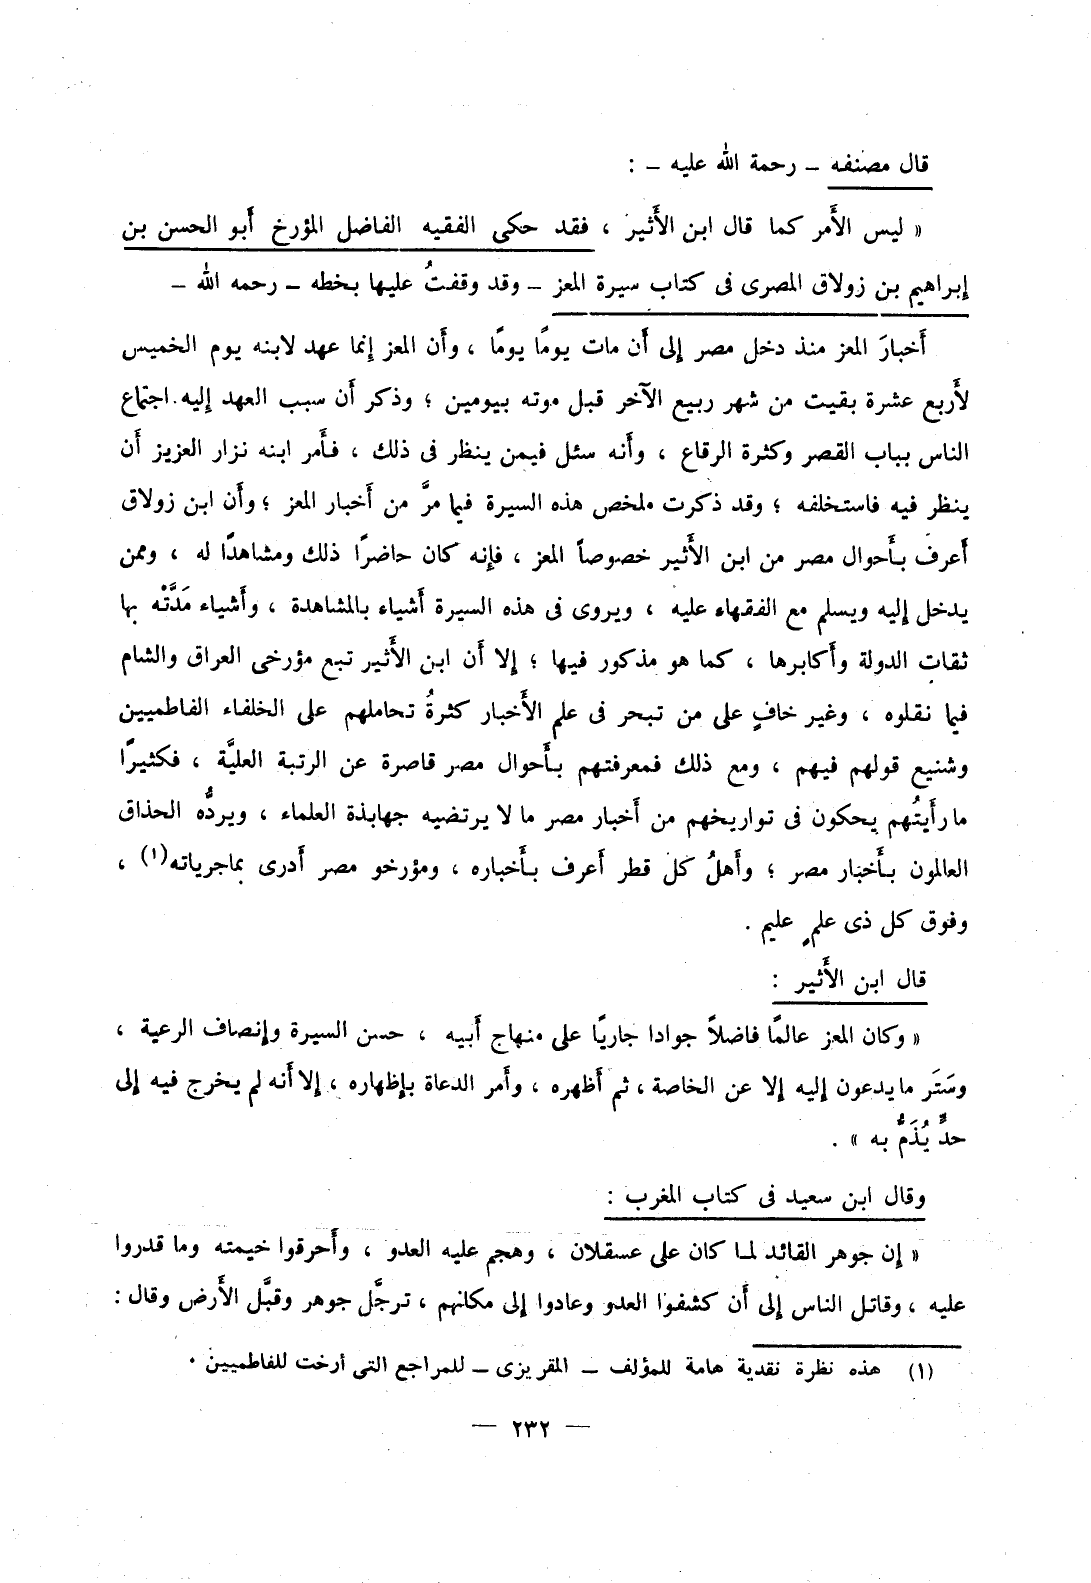 قال مصنفه – رحمة الله عليه – :
« ليس الأَمر كما قال ابن الأَثير ، فقد حكى الفقيه الفاضل المؤرخ أَبو الحسن بن
إبراهيم بن زولاق المصرى فى كتاب سيرة المعز – وقد وقفتُ عليها بخطه – رحمه الله –
أَخبارَ المعز منذ دخل مصر إلى أَن مات يومًا يومًا ، وأَن المعز إنما عهد لابنه يوم الخميس
لأَربع عشرة بقيت من شهر ربيع الآخر قبل موته بيومين ؛ وذكر أَن سبب العهد إليه اجتماع
الناس بباب القصر وكثرة الرقاع ، وأَنه سئل فيمن ينظر فى ذلك ، فأَمر ابنه نزار العزيز أَن
ينظر فيه فاستخلفه ؛ وقد ذكرت ملخص هذه السيرة فيما مرَّ من أَخبار المعز ؛ وأَن ابن زولاق
أَعرف بأَحوال مصر من ابن الأَثير خصوصاً المعز ، فإنه كان حاضرًا ذلك ومشاهدًا له ، وممن
يدخل إليه ويسلم مع الفقهاء عليه ، ويروى فى هذه السيرة أَشياء بالمشاهدة ، وأَشياء مَدَّتْه بها
ثقات الدولة وأَكابرها ، كما هو مذكور فيها ؛ إلا أَن ابن الأَثير تبع مؤرخى العراق والشام
فيما نقلوه ، وغير خافٍ على من تبحر فى علم الأَخبار كثرةُ تحاملهم على الخلفاء الفاطميين
وشنيع قولهم فيهم ، ومع ذلك فمعرفتهم بأَحوال مصر قاصرة عن الرتبة العليَّة ، فكثيرًا
ما رأَيتُهم يحكون فى تواريخهم من أَخبار مصر ما لا يرتضيه جهابذة العلماء ، ويردُّه الحذاق
العالمون بأَخبار مصر ؛ وأَهلُ كل قطر أَعرف بأَخباره ، ومؤرخو مصر أَدرى بماجرياته(١) ،
وفوق كل ذى علمٍ عليم .
قال ابن الأَثير :
« وكان المعز عالمًا فاضلاً جوادا جاريًا على منهاج أَبيه ، حسن السيرة وإنصاف الرعية ،
وسَتَر ما يدعون إليه إلا عن الخاصة ، ثم أَظهره ، وأَمر الدعاة بإظهاره ، إلا أَنه لم يخرج فيه إلى
حدٍّ يُذَمُّ به » .
وقال ابن سعيد فى كتاب المغرب :
« إن جوهر القائد لما كان على عسقلان ، وهجم عليه العدو ، وأَحرقوا خيمته وما قدروا
عليه ، وقاتل الناس إلى أَن كشفوا العدو وعادوا إلى مكانهم ، ترجَّل جوهر وقبَّل الأَرض وقال :
(١) هذه نظرة نقدية هامة للمؤلف – المقريزى – للمراجع التى أرخت للفاطميين .
— ٢٣٢ —